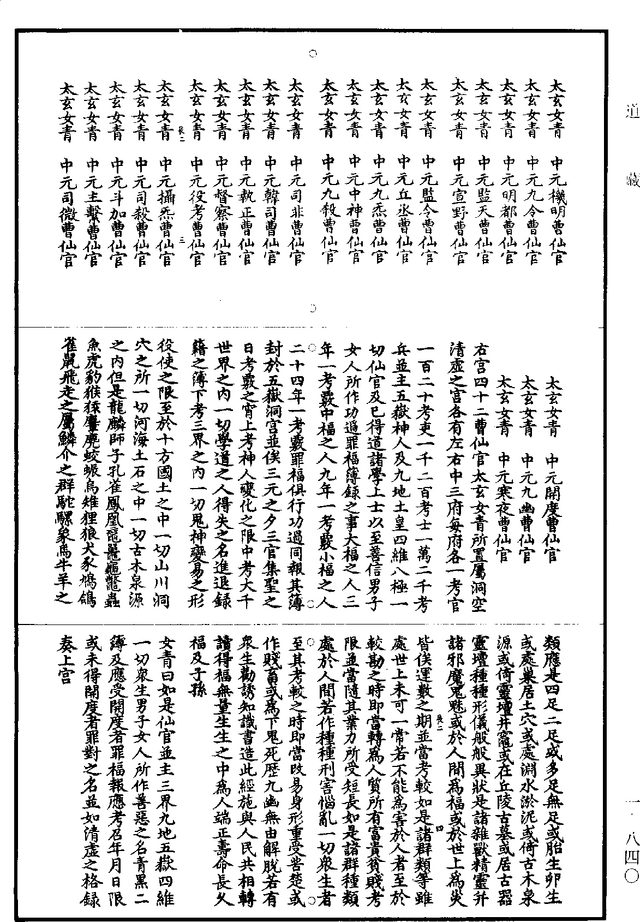 道藏
太玄女青　中元機明曹仙官
太玄女青　中元九令曹仙官
太玄女青　中元明都曹仙官
太玄女青　中元監天曹仙官
太玄女青　中元宣野曹仙官
太玄女青　中元監令曹仙官
太玄女青　中元丘丞曹仙官
太玄女青　中元九炁曹仙官
太玄女青　中元中神曹仙官
太玄女青　中元九殺曹仙官
太玄女青　中元司非曹仙官
太玄女青　中元韓司曹仙官
太玄女青　中元執正曹仙官
太玄女青　中元督察曹仙官
太玄女青　中元役考曹仙官
太玄女青　中元攝炁曹仙官
太玄女青　中元司殺曹仙官
太玄女青　中元斗加曹仙官
太玄女青　中元主擊曹仙官
太玄女青　中元司微曹仙官
太玄女青　中元開度曹仙官
太玄女青　中元九幽曹仙官
太玄女青　中元寒夜曹仙官
右宮四十二曹仙官太玄女青所置屬洞空
清虛之宮各有左右中三府每府各一考官
一百二十考吏一千二百考士一萬二千考
兵並主五嶽神人及九地土皇四維八極一
切仙官及已得道諸學上士以至善信男子
女人所作功過罪福簿錄之事大福之人三
年一考覈中福之人九年一考覈小福之人
二十四年一考覈罪福俱行功過同報其簿
封於五嶽洞宮並俟三元之夕三官集聖之
日考覈之宵上考神人變化之限中考大千
世界之內一切學道之人得失之名進退錄
籍之簿下考三界之內一切鬼神變易之形
役使之限至於十方國土之中一切山川洞
穴之所一切河海土石之中一切古木泉源
之內但是龍麟師子孔雀鳳凰黿鼉龜鼈蟲
魚虎豹猴猱麞鹿蛟蜃烏雉狸狼犬豕鳩鴿
雀鼠飛走之屬鱗介之群駝騾象馬牛羊之
類應是四足二足或多足無足或胎生卵生
或處巢居土穴或處淵水淤泥或倚古木泉
源或倚靈壇井竈或在丘陵古墓或居古器
靈壇種種形儀般般異狀是諸雜獸精靈并
諸邪魔鬼魅或於人間為福或於世上為災
皆俟運數之期並當考較如是諸群類等雖
處世上未可一常若不能為害於人者至於
較勘之時即當轉為人質所有富貴貧賤考
限並當隨其業力所受短長如是諸群種類
處於人間若作種種刑害惱亂一切衆生者
至其考較之時即當改易身形重受苦楚或
作賤畜或為下鬼死歷九幽無由解脫若有
衆生勸誘知識書造此經施與人民共相轉
讀得福無量生生之中為人端正壽命長久
福及子孫
女青曰如是仙官並主三界九地五嶽四維
一切衆生男子女人所作善惡之名青黑二
簿及應受開度者罪福報應考召年月日限
或未得開度者罪對之名並如清虛之格錄
奏上宮
一‧八四〇